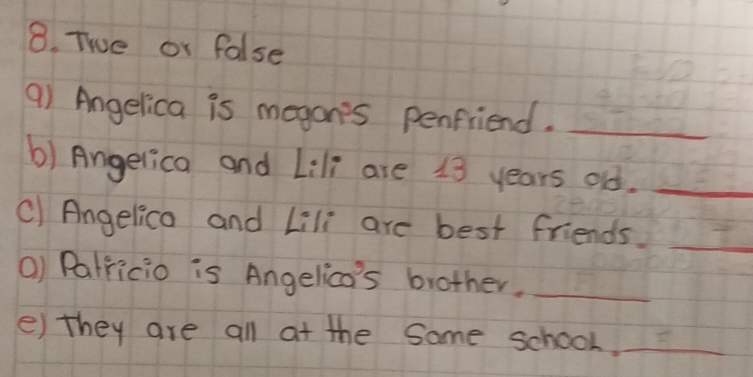 8. True or false
a) Angelica is megan's penfriend. ______
b) Angelica and Lili are 13 years old. ______
c) Angelica and Lili are best friends. ______
d) Patricio is Angelica's brother. ______
e) They are all at the same school. ______